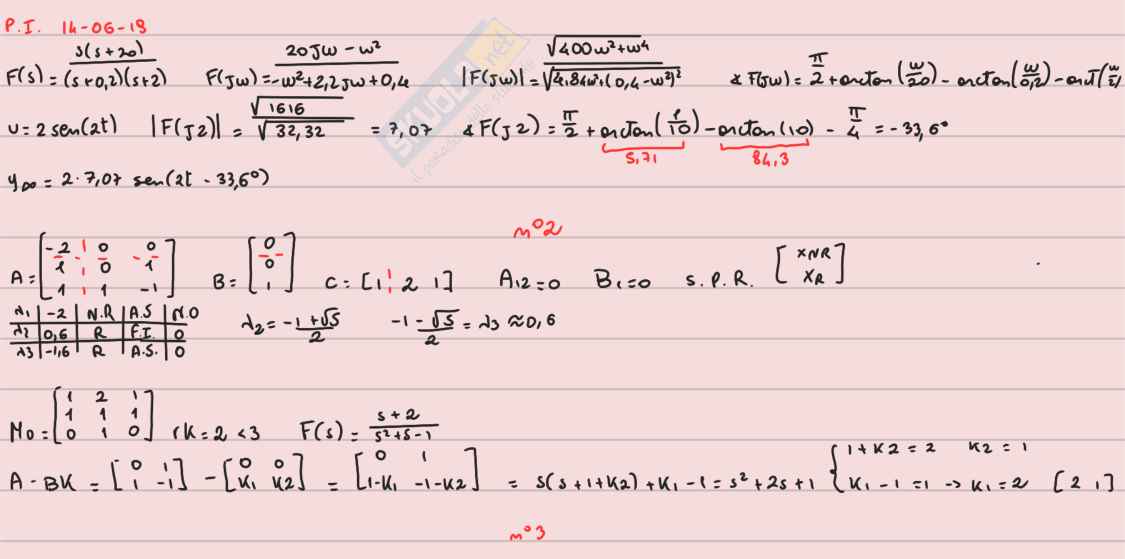 P.I. 14-06-18
F(s) = s(s+20) / (s+0,2)(s+2)   F(jω) = 20jω - ω² / -ω²+2,2jω+0,4   |F(jω)| = √400ω²+ω⁴ / √4,84ω²+(0,4-ω²)²   ∡F(jω) = π/2 + arctan(ω/20) - arctan(ω/0,2) - arct(ω/2)
u = 2 sen(2t)   |F(j2)| = √1616 / √32,32 = 7,07   ∡F(j2) = π/2 + arctan(1/10) - arctan(10) - π/4 = -33,6°
5,71   84,3
y∞ = 2·7,07 sen(2t - 33,6°)
n°2
A = [-2 0 0; 1 0 1; 1 1 -1]   B = [0; 0; 1]   C = [1 2 1]   A12=0   B1=0   S.P.R.   [xNR; xR]
λ1 | -2 | N.R | A.S | N.O   λ2 = -1+√5 / 2   -1-√5 / 2 = λ3 ≈ 0,6
λ2 | 0,6 | R | F.I. | O
λ3 | -1,6 | R | A.S. | O
Mo = [1 2 1; 1 1 1; 0 1 0]   rk=2 <3   F(s) = s+2 / s²+s-1
A-BK = [0 1; 1 -1] - [0 0; K1 K2] = [0 1; 1-K1 -1-K2] = s(s+1+K2)+K1-1 = s²+2s+1   { 1+K2=2   K2=1
K1-1=1 -> K1=2   [2 1]
n°3
SKUOLA.net